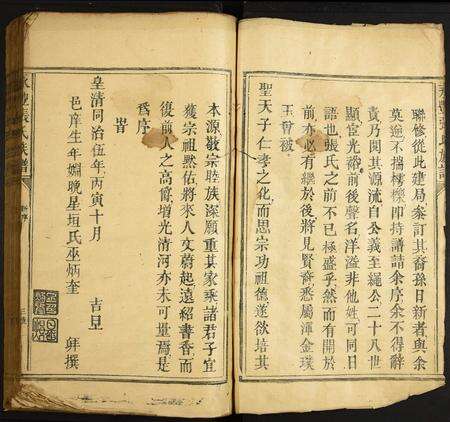 聯修從此建局叅訂其裔孫日新者與余
莫逆不揣樗櫟即持譜請余序余不得辭
責乃閱其源流自公義至繩公二十八世
顯宦光前後聲名洋溢非他姓可同日
語也張氏之前不已極盛乎然而有開於
前亦必有繼於後將見賢裔悉屬渾金璞
玉曾被
聖天子仁壽之化而思宗功祖德遂欲培其
本源敬宗睦族深願重其家乘諸君子宜
獲宗祖默佑將來人文蔚起遠紹書香而
復前人之高爵增光清河亦未可量焉是
爲序
旹
皇清同治伍年丙寅十月 吉旦
邑庠生年姻晚星垣氏巫炳奎 拜撰
永豐張氏族譜